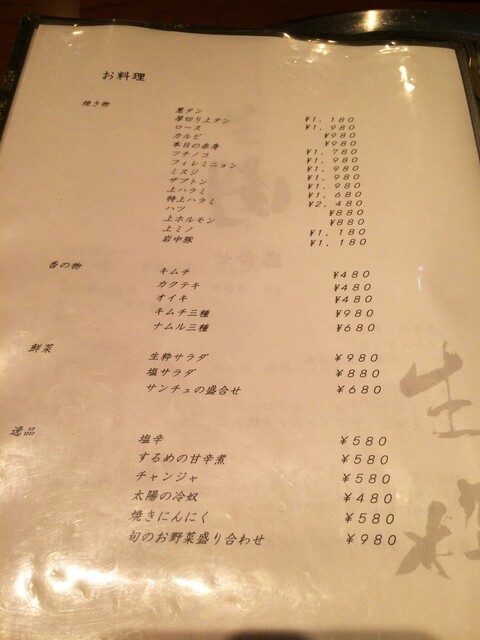 お料理
焼き物
葱タン ¥1,180
厚切り上タン ¥1,980
ロース ¥980
カルビ ¥980
本日の赤身 ¥1,780
ツチノコ ¥1,980
フィレミニョン ¥1,980
ミスジ ¥1,980
ザブトン ¥1,980
上ハラミ ¥1,680
特上ハラミ ¥2,480
ハツ ¥880
上ホルモン ¥880
上ミノ ¥1,180
岩中豚 ¥1,180
香の物
キムチ ¥480
カクテキ ¥480
オイキ ¥480
キムチ三種 ¥980
ナムル三種 ¥680
鮮菜
生粋サラダ ¥980
塩サラダ ¥880
サンチュの盛合せ ¥680
逸品
塩辛 ¥580
するめの甘辛煮 ¥580
チャンジャ ¥580
太陽の冷奴 ¥480
焼きにんにく ¥580
旬のお野菜盛り合わせ ¥980
盛合せ
生